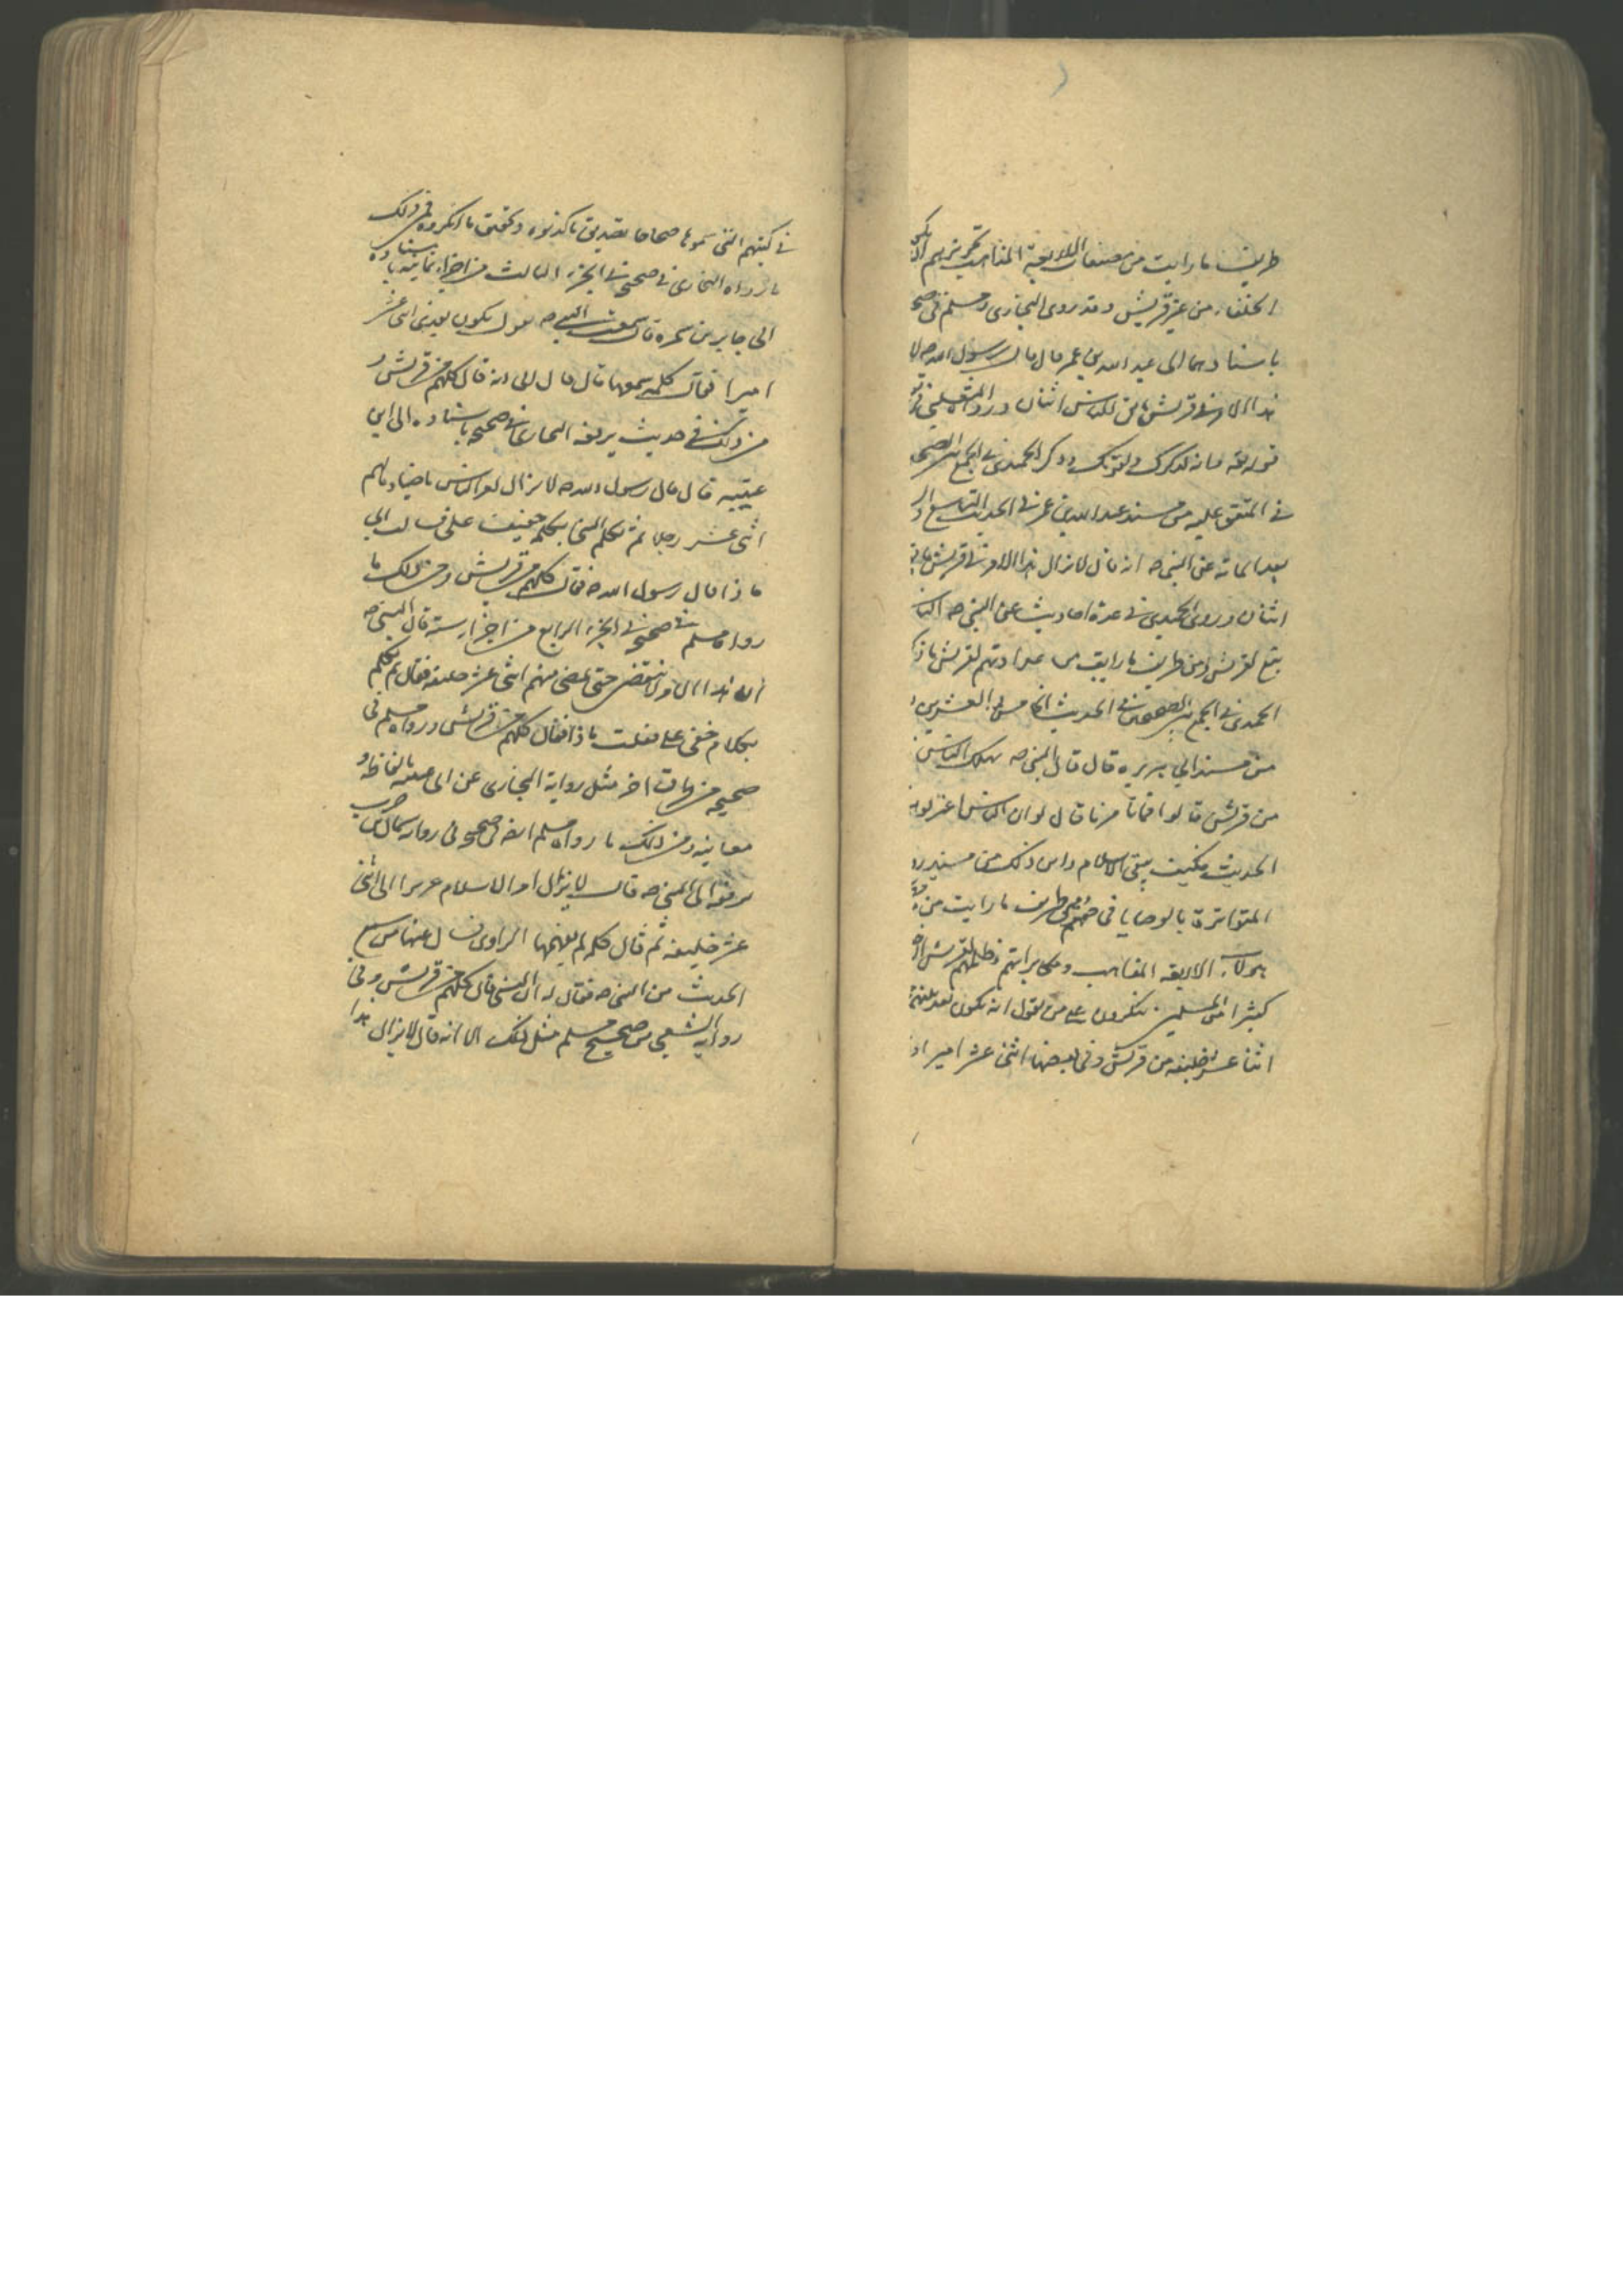 طريف ما رايت من مصنفات الاربعة المذاهب تجويزهم ان يكون
الخلفاء من غير قريش وقد روى البخارى ومسلم فى
باسنادهما الى عبد الله بن عمر قال قال رسول الله ص لا
هذا الامر فى قريش ما بقى من الناس اثنان وروا الثعلبى
قوله تعالى وانه لذكر لك ولقومك وذكر الحميدى فى الجمع بين
فى المتفق عليه من مسند عبد الله بن عمر فى الحديث التاسع
بعد المائة عن النبى ص انه قال لا يزال هذا الامر فى قريش ما بقى
اثنان وروى الحميدى فى عدة احاديث عن النبى ص
تبع لقريش ومن طريف ما رايت من عداوتهم لقريش ما
الحميدى فى الجمع بين الصحيحين فى الحديث الخامس والعشرين
من مسند ابي هريرة قال قال النبى ص يهلك الناس
من قريش قالوا فما تامرنا قال لو ان الناس اعتزلوهم
الحديث فكيف يبقى الاسلام واين ذلك من مسنده
المتواترة بالوصايا فى حقهم ومن طريف ما رايت من
هولاء الاربعة المذاهب ومكابراتهم وظلمهم لقريش
كثيرا من المسلمين ينكرون على من يقول انه يكون بعد نبيهم
اثنا عشر خليفه من قريش وفى بعضها اثنى عشر اميرا
فى كتبهم التى سموها صحاحا تصديق ما كذبوه وتحقيق ما انكروه فمن ذلك
ما رواه البخارى فى صحيحه فى الجزء الثالث من اجزاء ثمانية باسناده
الى جابر بن سمره قال سمعت النبى ص يقول يكون بعدى اثنى عشر
اميرا فقال كلمة لم اسمعها قال قال ابى انه قال كلهم من قريش و
من ذلك فى حديث يرفعه البخارى فى صحيحه باسناده الى ابن
عيينه قال قال رسول الله ص لا يزال امر الناس ماضيا ما وليهم
اثنى عشر رجلا ثم تكلم النبى بكلمة خفيت على فسالت ابى
ماذا قال رسول الله ص فقال كلهم من قريش ومن ذلك ما
رواه مسلم فى صحيحه فى الجزء الرابع من اجزاء ستة قال النبى ص
ان هذا الامر لا ينقضى حتى يمضى منهم اثنى عشر خليفه فقال ثم تكلم
بكلام خفى على فقلت ماذا فقال كلهم من قريش ورواه مسلم فى
صحيحه من طريق اخر مثل رواية البخارى عن ابن عيينه بالفاظه و
معانيه ومن ذلك ما رواه مسلم ايضا فى صحيحه فى رواية سماك بن حرب
يرفعه الى النبى ص قال لا يزال امر الاسلام عزيزا الى اثنى
عشر خليفه ثم قال كلمة لم يفهمها الراوى فسال عنها من سمع
الحديث من النبى ص فقال له ان النبى قال كلهم من قريش وفى
رواية الشعبى من صحيح مسلم مثل ذلك الا انه قال لا يزال هذا